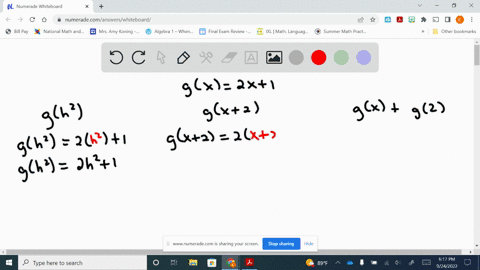 Numerade Whiteboard
numerade.com/answers/whiteboard/
Bill Pay
National Math and
Mrs. Amy Koning -
Algebra 1 - Whoin
Final Exam Review -
IXL | Math, Languag
Summer Math Pract
Other bookmarks
g(x) = 2x+1
g(h²)
g(x+2)
g(x) + g(2)
g(h²) = 2(h²)+1
g(x+2) = 2(x+2
g(h²) = 2h²+1
www.numerade.com is sharing your screen.
Stop sharing
Hide
Type here to search
89°F
6:17 PM
9/24/2023